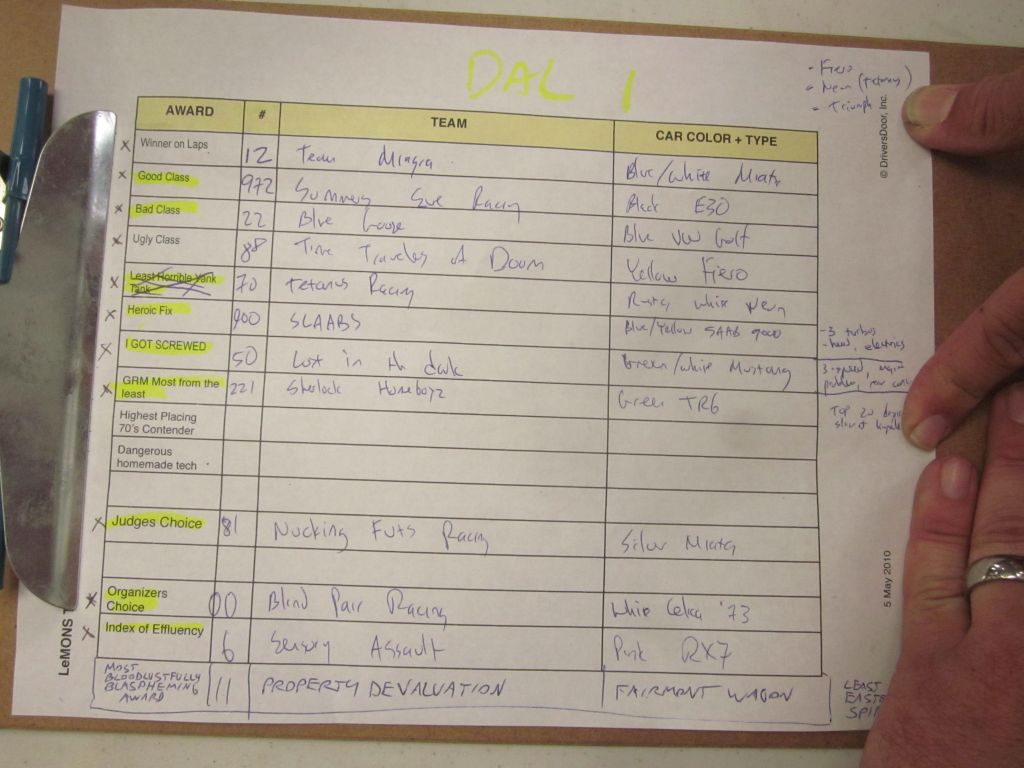 DAL 1
- Fiero
- Neon (tetanus)
- Triumph
© DriversDoor, Inc.
AWARD # TEAM CAR COLOR + TYPE
Winner on Laps 12 Team Miagra Blue/White Miata
Good Class 972 Summers Eve Racing Black E30
Bad Class 22 Blue Goose Blue VW Golf
Ugly Class 88 Time Traveles of Doom Yellow Fiero
Least Horrible Yank
Tank 70 tetanus Racing Rusty white Neon
Heroic Fix 900 SLAABS Blue/Yellow SAAB 9000
- 3 turbos
- head, electrics
I GOT SCREWED 50 Lost in th dark Green/white Mustang
3-speed, engine
GRM Most from the
least 221 Sherlock Homeboyz Green TR6
Top 20
Highest Placing
70's Contender
Dangerous
homemade tech
Judges Choice 81 Nucking Futs Racing Silver Miata
Organizers
Choice 00 Blind Pair Racing White Celica '73
Index of Effluency 6 Sensory Assault Pink RX7
MOST
BLOODLUSTFULLY
BLASPHEMING
AWARD 111 PROPERTY DEVALUATION FAIRMONT WAGON
LEAST
EASTE
SPI
LeMONS T
5 May 2010